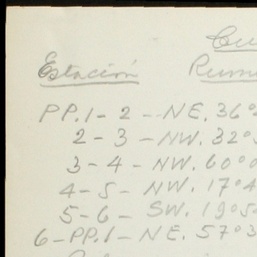 Cu
Estación Rum
PP.1-2--NE. 36°
2-3-NW. 32°
3-4-NW. 60°0
4-5-NW. 17°4
5-6-SW. 19°5
6-PP.1-NE. 57°3